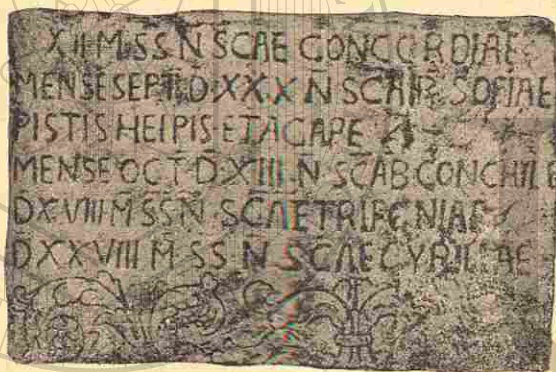 XII M SS N SCAE CONCORDIAE
MENSE SEPT D XXX N SCAR SOFIAE
PISTIS HELPIS ET AGAPE
MENSE OCT D XIII N SCAB
D XVIII M SS N SCAE TRIFENIAE
D XXVIII M SS N SCAE CYRILLAE